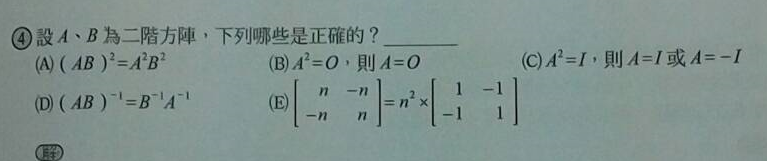 ④設 A、B 為二階方陣，下列哪些是正確的？________
(A) ( AB )²=A²B² (B) A²=O，則 A=O (C) A²=I，則 A=I 或 A=－I
(D) ( AB )⁻¹=B⁻¹A⁻¹ (E) [ n －n ; －n n ] = n² × [ 1 －1 ; －1 1 ]
解